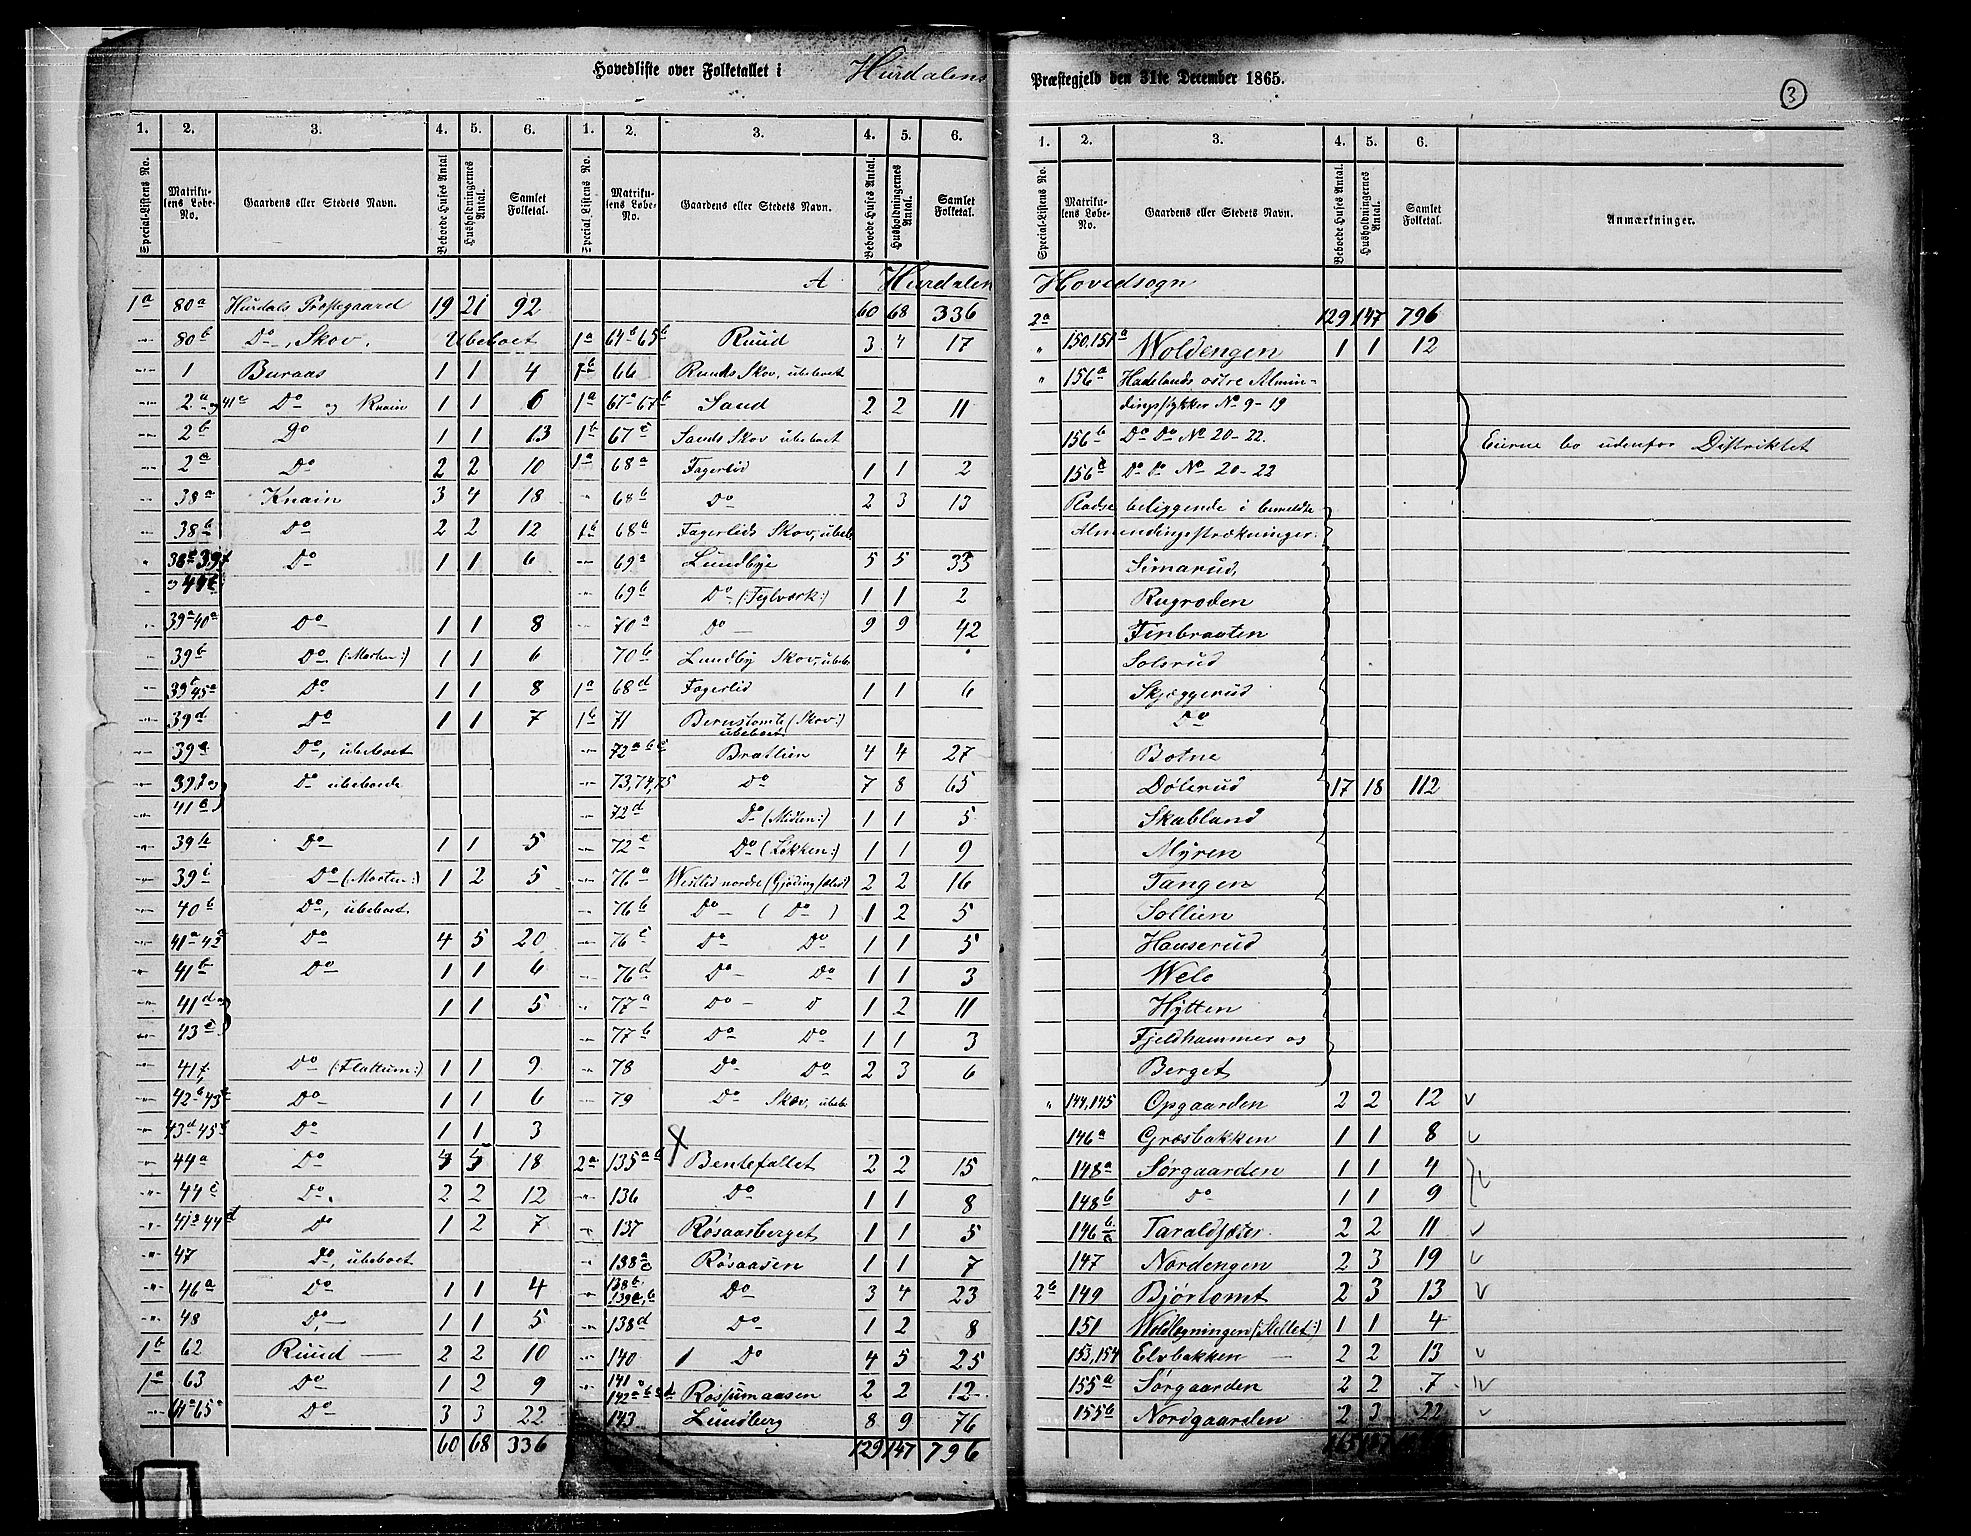 Hovedliste over Folketallet i Hurdalens
Præstegjeld den 31te December 1865.
3
1. 2. 3. 4. 5. 6. 1. 2. 3. 4. 5. 6.
Special-Listens No. Matriku-lens Løbe-No. Gaardens eller Stedets Navn. Beboede Huses Antal Husholdningernes Antal. Samlet Folketal. Special-Listens No. Matriku-lens Løbe-No. Gaardens eller Stedets Navn. Beboede Huses Antal. Husholdningernes Antal. Samlet Folketal.
1a 80a Hurdals Præstegaard 19 21 92
80b Do, Skov. Ubeboet
1 Buraas 1 1 4
2a og 41a Do og Knain 1 1 6
2b Do 1 1 13
2a Do 2 2 10
38a Knain 3 4 18
38b Do 2 2 12
Do 1 1 6
39a 40a Do 1 1 8
39b Do (:Morten:) 1 1 6
39c 45a Do 1 1 8
39d Do 1 1 7
39e Do, ubeboet
Do ubeboede
39h Do 1 1 5
39i Do (:Morten:) 1 2 5
40b Do, ubeboet
41a 42a Do 4 5 20
41b Do 1 1 6
41d og 43c 1 1 5
41f Do (:Flattum:) 1 1 9
42b 43b Do 1 1 6
43d 45b Do 1 1 3
44a Do 18
44c Do. 2 2 12
44d Do 1 2 7
47 Do, ubeboet
46a Do 1 1 4
48 Do 1 1 5
1b 62 Ruud 2 2 10
1a 63 Do 1 2 9
64a 65a Do 3 3 22
60 68 336
A Hurdalen
60 68 336
1a 64b 65b Ruud 3 4 17
1b 66 Ruuds Skov, ubeboet
1a 67a 67b Sand 2 2 11
1b 67c Sands Skov ubeboet
1a 68a Fagerlid 1 1 2
68b Do 2 3 13
1b 68a Fagerlids Skov, ubeb
69a Lundbye 5 5 33
69b Do. (:Teglværk:) 1 1 2
70a Do 9 9 42
70b Lundby Skov, ubeb
1a 68d Fagerlid 1 1 6
1b 71 Berustomte (Skov:) ubeboet
72a b c Bratlien 4 4 27
73,74,75 Do 7 8 65
72d Do (Midten:) 1 1 5
72e Do (Løkken:) 1 1 9
76a Westlid nordre 2 2 16
76b Do ( Do ) 1 2 5
76c Do Do 1 1 5
76d Do Do 1 1 3
77a Do D 1 2 11
77b Do Do 1 1 3
78 Do Do 2 3 6
79 Do Skov, ubeb
2a 135a b Bentefallet 2 2 15
136 Do 1 1 8
137 Røsaasberget 1 1 5
138a Røsaasen 1 1 7
138b 139a,b Do 3 4 23
138d Do 1 2 8
140 Do 4 5 25
141 142a b c d Røssumaasen 2 2 12
143 Lundberg 8 9 76
129 147 796
1. 2. 3. 4. 5. 6.
Special-Listens No. Matriku-lens Løbe-No. Gaardens eller Stedets Navn. Beboede Huses Antal. Husholdningernes Antal. Samlet Folketal. Anmærkninger.
Hovedsogn
2a 129 147 796
" 150,151a Woldengen 1 1 12
" 156a Hadelands østre Almin-
dingsstykker No 9-19
156b Do Do No 20-22. Eierne bo udenfor Distriktet
156c Do Do No 20-22
Pladse beliggende i bemeldte
Almendingsstrækninger:
Simarud,
Rugroden
Finbraaten
Solsrud
Skjæggerud
Do
Botne
Dølerud 17 18 112
Skabland
Myren
Tangen
Sollien
Hauserud
Welo
Hytten
Fjeldhammer og
Berget
" 144,145 Opgaarden 2 2 12
146a Græsbakken 1 1 8
148a Sørgaarden 1 1 4
148b Do 1 1 9
146b Taraldsæter 2 2 11
147 Nordengen 2 3 19
2b 149 Bjørtomt 2 3 13
151 1 1 4
153,154 Elvbakken 2 2 13
155a Sørgaarden 2 2 7
155b Nordgaarden 2 3 22